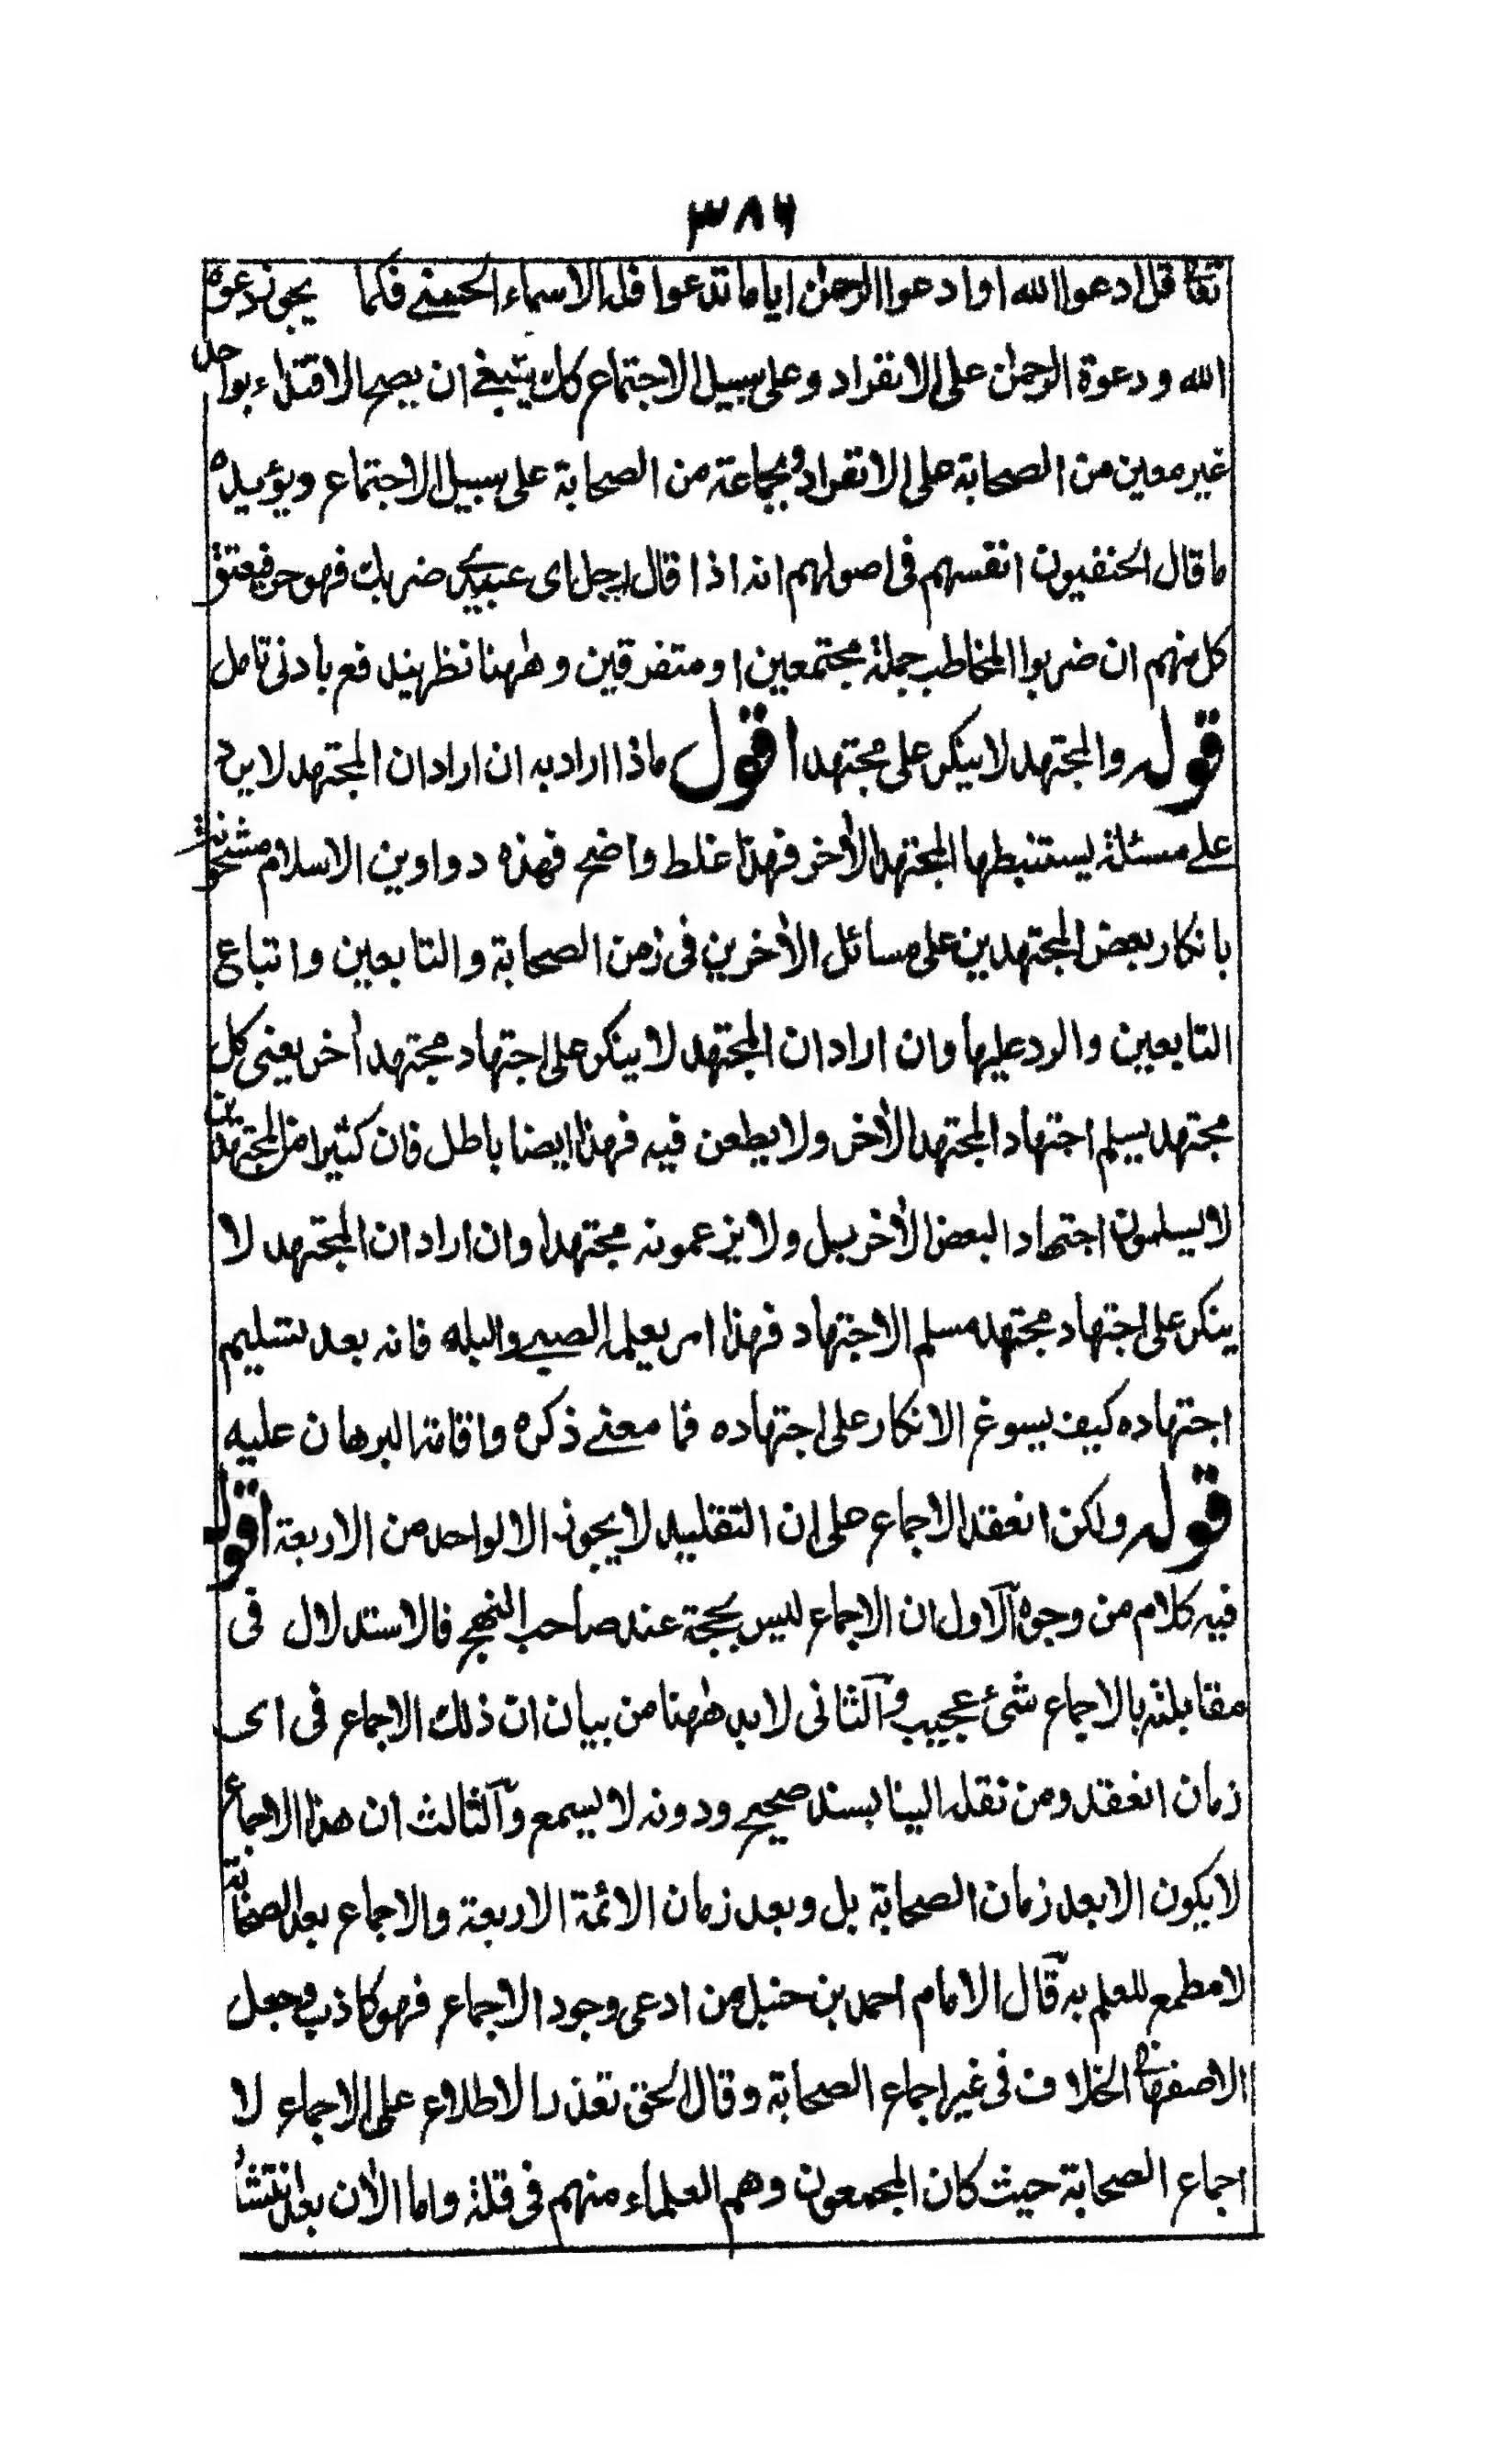 ٣٨٦
تعالى قل ادعوا الله او ادعوا الرحمٰن ايا ما تدعوا فله الاسماء الحسنے فكما يجوز دعوة
الله ودعوة الرحمٰن على الانفراد وعلى سبيل الاجتماع كك ينبغے ان يصح الاقتداء بواحد
غير معين من الصحابة على الانفراد وبجماعة من الصحابة على سبيل الاجتماع ويؤيده
ما قال الحنفيون انفسهم فى اصولهم انه اذا قال رجل اى عبيدى ضربك فهو حر فيعتق
كل منهم ان ضربوا المخاطب جملة مجتمعين او متفرقين وههنا نظر يندفع بادنى تامل
قوله والمجتهد لا ينكر على مجتهد اقول ماذا اراد به ان اراد ان المجتهد لا يرد
علے مسئلة يستنبطها المجتهد الأخر فهذا غلط واضح فهذه دواوين الاسلام مشحونة
بانكار بعض المجتهدين على مسائل الأخرين فى زمن الصحابة والتابعين واتباع
التابعين والرد عليها وان اراد ان المجتهد لا ينكر على اجتهاد مجتهد أخر يعنى كل
مجتهد يسلم اجتهاد المجتهد الأخر ولا يطعن فيه فهذا ايضا باطل فان كثيرا من المجتهدين
لا يسلمون اجتهاد البعض الأخر بل ولا يزعمونه مجتهدا وان اراد ان المجتهد لا
ينكر على اجتهاد مجتهد مسلم الاجتهاد فهذا امر يعلمه الصبے والبله فانه بعد تسليم
اجتهاده كيف يسوغ الانكار على اجتهاده فما معنے ذكره واقامة البرهان عليه
قوله ولكن انعقد الاجماع على ان التقليد لا يجوز الا لواحد من الاربعة اقول
فيه كلام من وجوه الاول ان الاجماع ليس بحجة عند صاحب النهج فالاستدلال فى
مقابلته بالاجماع شئ عجيب والثانى لابد ههنا من بيان ان ذلك الاجماع فى اى
زمان انعقد ومن نقله الينا بسند صحيح ودونه لا يسمع والثالث ان هذا الاجماع
لا يكون الا بعد زمان الصحابة بل وبعد زمان الائمة الاربعة والاجماع بعد الصحابة
لا مطمع للعلم به قال الامام احمد بن حنبل من ادعى وجود الاجماع فهو كاذب وجعل
الاصفهانى الخلاف فى غير اجماع الصحابة وقال الحق تعذر الاطلاع على الاجماع لا
اجماع الصحابة حيث كان المجمعون وهم العلماء منهم فى قلة واما الأن بعد انتشار